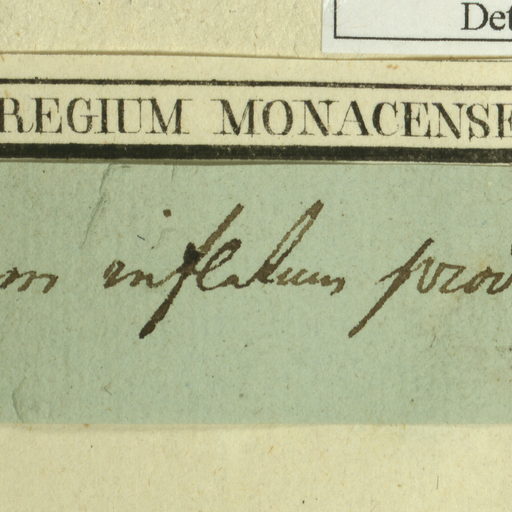 Det
REGIUM MONACENSE
m inflatum prov